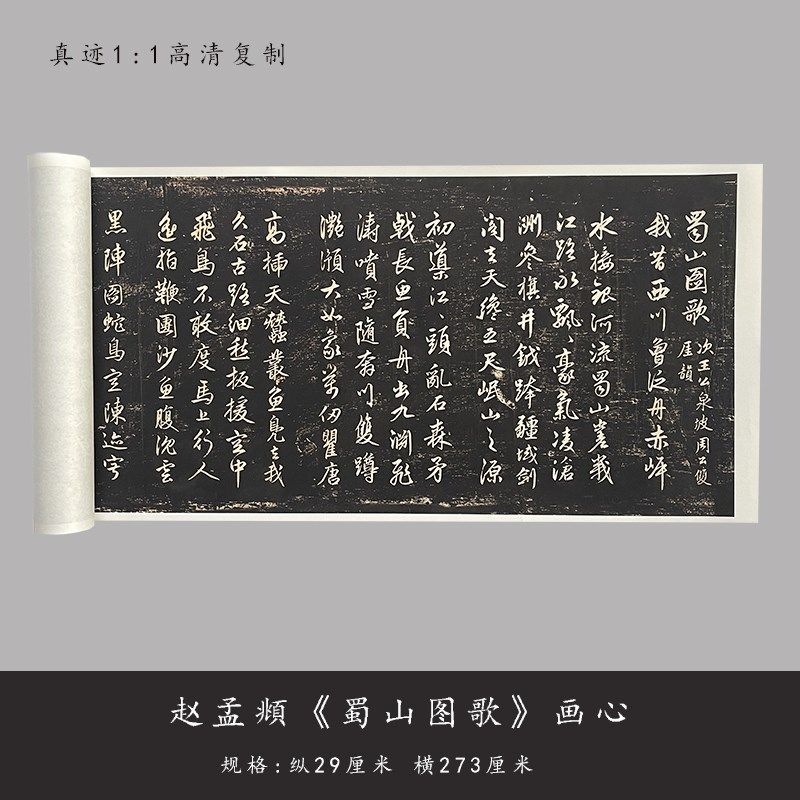 真迹1:1高清复制
蜀山圖歌
次王公泉坡周公俊
厓韻
我昔西川曾泛舟赤岸
水接銀河流蜀山
江路永飄飄豪氣凌滄
洲參橫井鉞跨疆域劍
閣去天纔五尺岷山之源
初導江江頭亂石森矛
戟長魚負舟出九淵飛
濤噴雪隨奔川雙蹲
灩澦大如象萬仞瞿唐
高插天蠶叢魚鳧去我
久石古路細愁扳援空中
飛鳥不敢度馬上行人
指鞭團沙魚腹沈雲
黑陣圖蛇鳥空陳迹宇
赵孟頫《蜀山图歌》画心
规格:纵29厘米 横273厘米